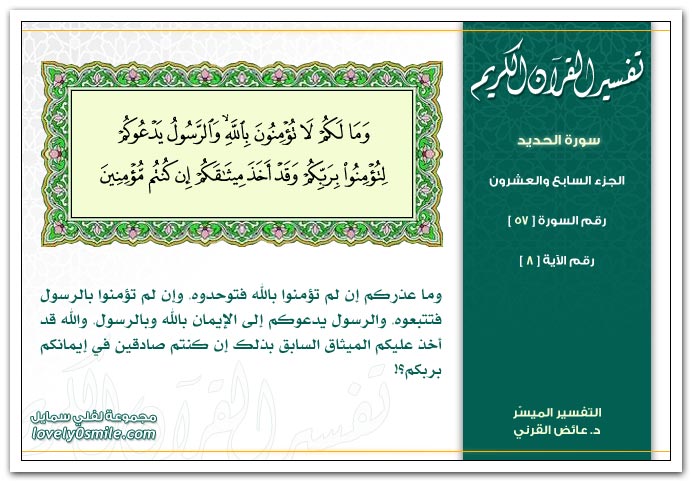 تفسير القرآن الكريم
سورة الحديد
الجزء السابع والعشرون
رقم السورة [ ٥٧ ]
رقم الآية [ ٨ ]
وَمَا لَكُمْ لَا تُؤْمِنُونَ بِاللَّهِ ۙ وَالرَّسُولُ يَدْعُوكُمْ
لِتُؤْمِنُوا۟ بِرَبِّكُمْ وَقَدْ أَخَذَ مِيثَـٰقَكُمْ إِن كُنتُم مُّؤْمِنِينَ
وما عذركم إن لم تؤمنوا بالله فتوحدوه، وإن لم تؤمنوا بالرسول
فتتبعوه، والرسول يدعوكم إلى الإيمان بالله وبالرسول، والله قد
أخذ عليكم الميثاق السابق بذلك إن كنتم صادقين في إيمانكم
بربكم؟!
التفسير الميسّر
د. عائض القرني
مجموعة لفلي سمايل
lovely0smile.com
تفسير القرآن الكريم